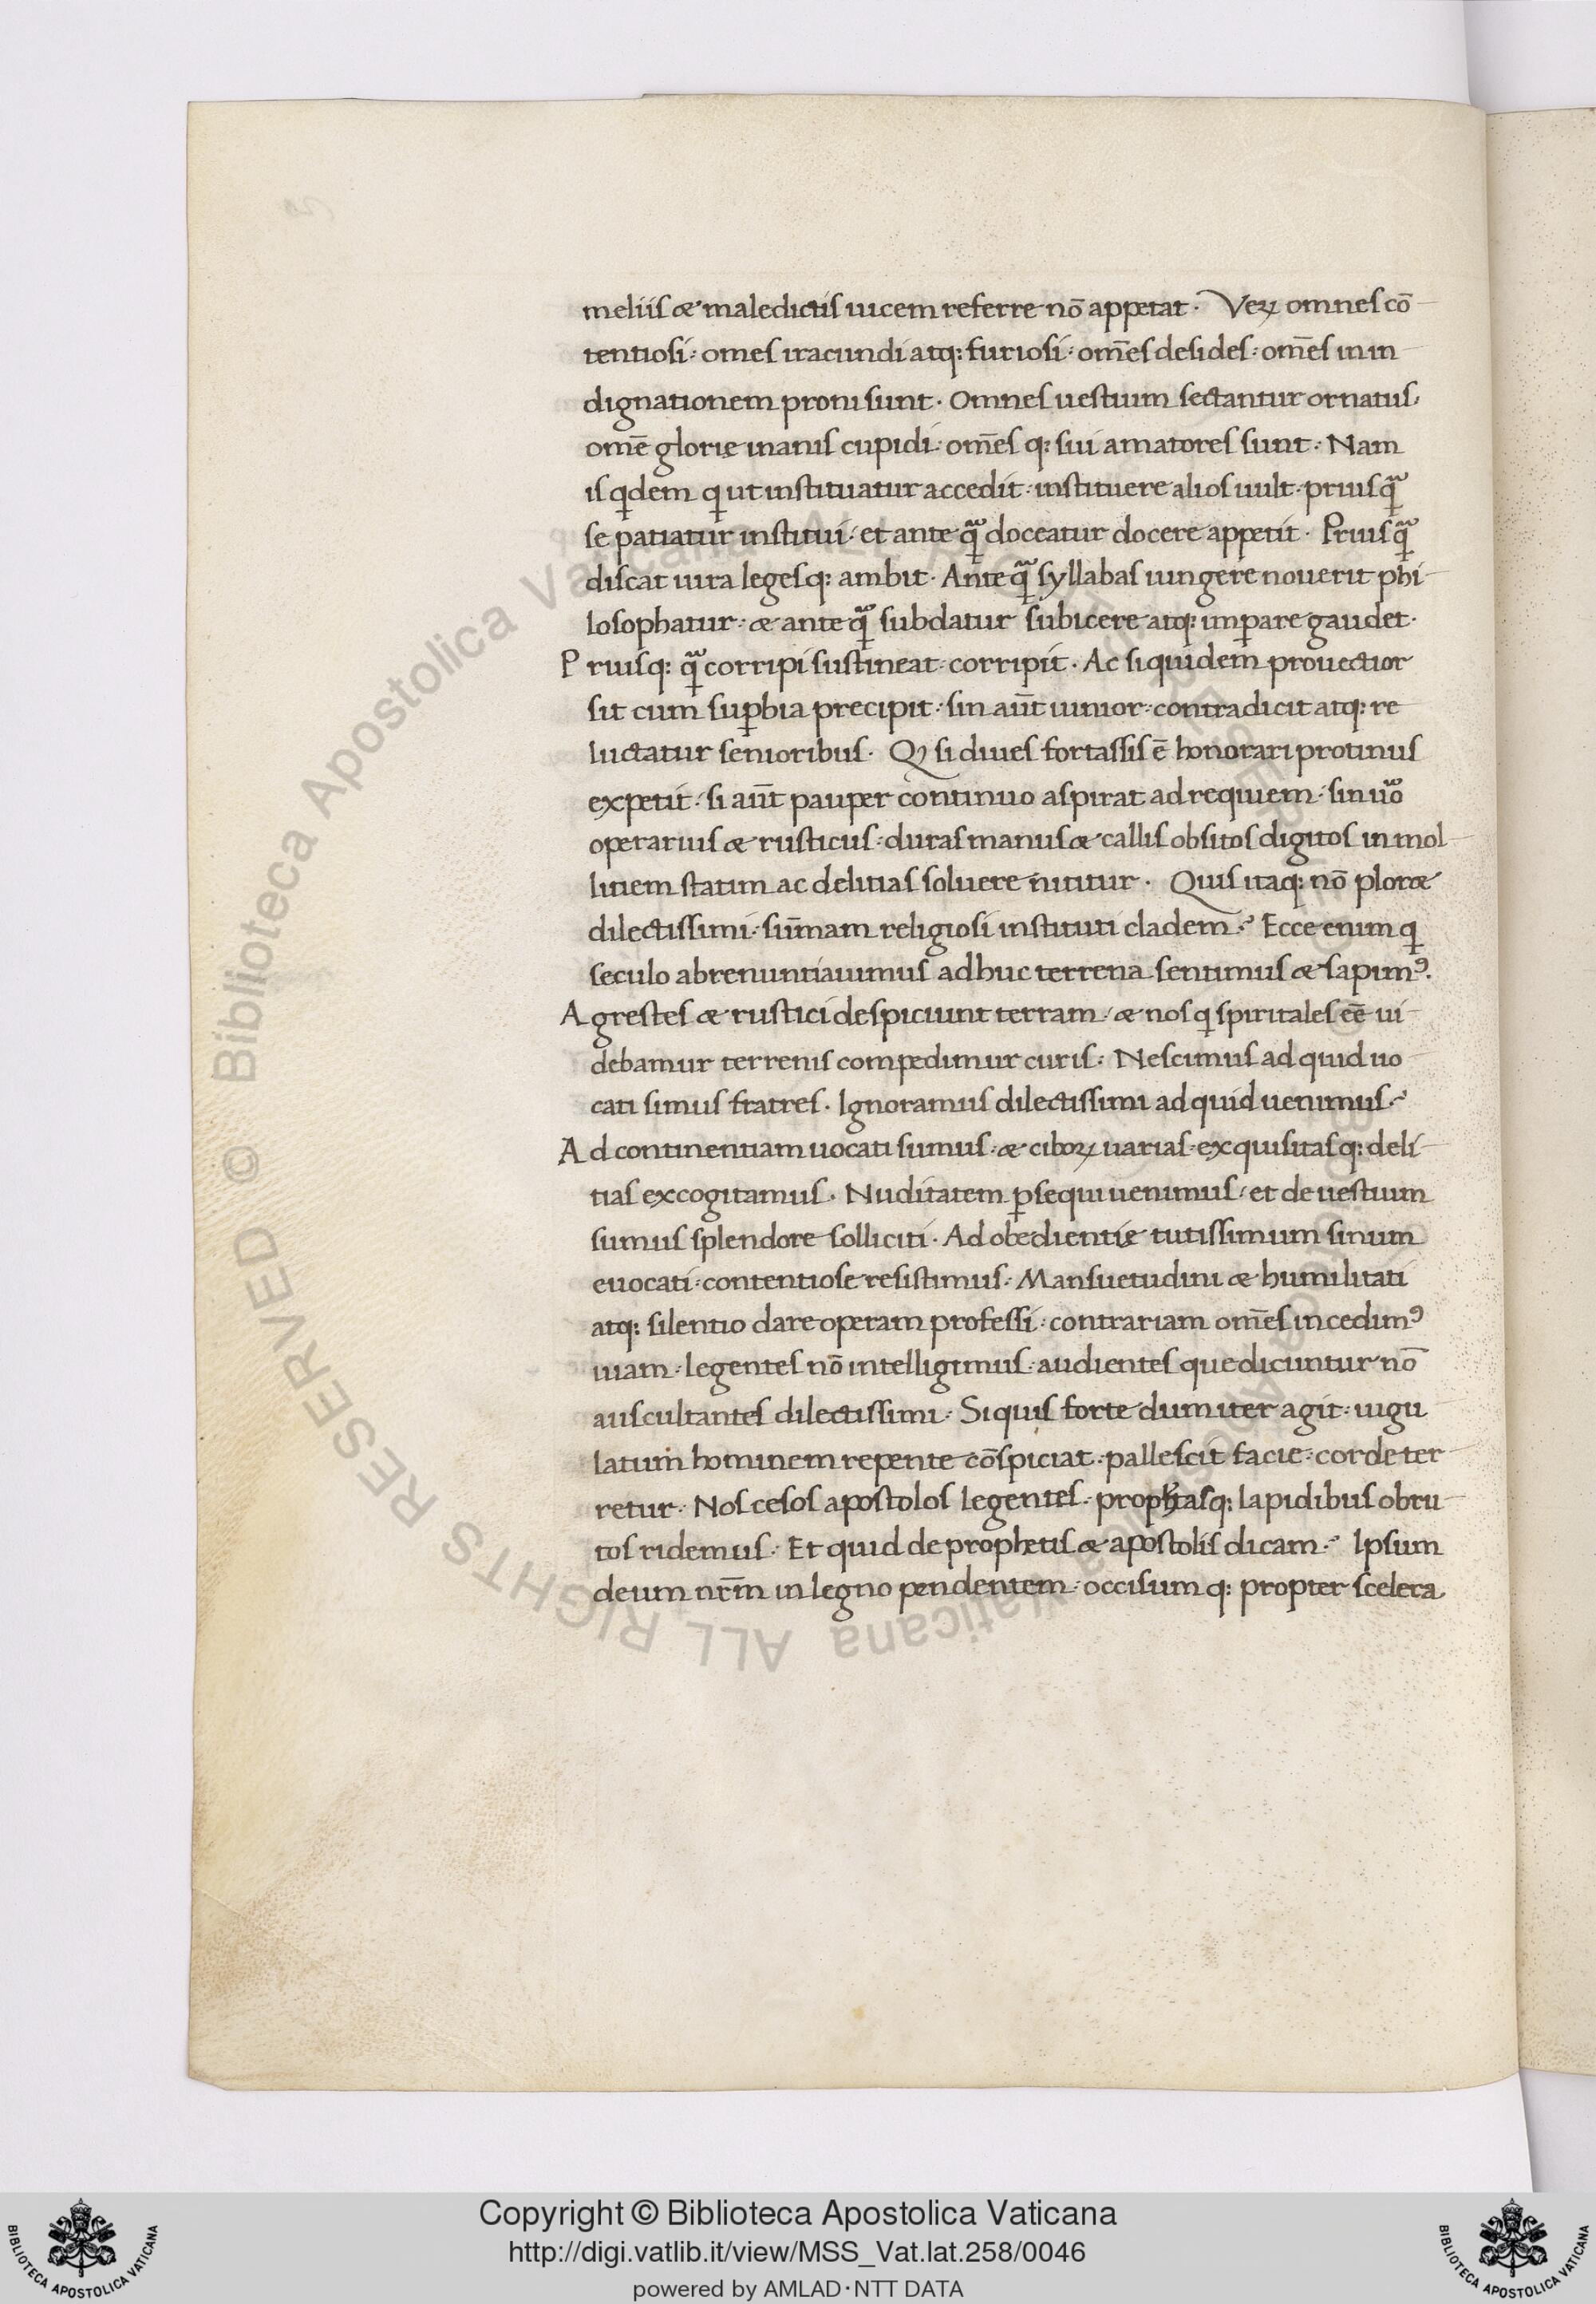 meliis & maledictis uicem referre nō appetat. Veꝝ omnes cō
tentiosi: omes iracundi atq: furiosi: om̄es desides: om̄es in in
dignationem proni sunt. Omnes uestium sectantur ornatus,
omē glorię inanis cupidi: om̄es q: sui amatores sunt: Nam
is qdem q ut instituatur accedit: instituere alios uult: prius qᷓ
se patiatur institui: et ante qᷓ doceatur docere appetit. Prius qᷓ
discat iura leges q: ambit. Ante qᷓ syllabas iungere nouerit phi
losophatur: & ante qᷓ subdatur subicere atq: imꝑare gaudet.
Prius q: qᷓ corripi sustineat: corripit. Ac si quidem prouectior
sit cum suꝑbia precipit: sin aūt iunior: contradicit atq: re
luctatur senioribus. Qꝫ si diues fortassis ē honorari protinus
expetit: si aūt pauper continuo aspirat ad requiem: sin uͦo
operarius & rusticus: duras manus & callis obsitos digitos in mol
litiem statim ac delitias soluere nititur. Quis itaq: nō plor&
dilectissimi: sūmam religiosi instituti cladem? Ecce enim q
seculo abrenuntiauimus adhuc terrena sentimus & sapimꝰ.
Agrestes & rustici despiciunt terram: & nos q spiritales eē ui
debamur terrenis compedimur curis: Nescimus ad quid uo
cati simus fratres. Ignoramus dilectissimi ad quid uenimus?
Ad continentiam uocati sumus: & ciboꝝ uarias exquisitas q: deli
tias excogitamus. Nuditatem ꝑsequi uenimus: et de uestium
sumus splendore solliciti. Ad obedientię tutissimum sinum
euocati: contentiose resistimus: Mansuetudini & humilitati
atq: silentio dare operam professi: contrariam om̄es incedimꝰ
uiam: legentes nō intelligimus: audientes que dicuntur nō
auscultantes dilectissimi: Si quis forte dum iter agit: iugu
latum hominem repente cōspiciat: pallescit facie: corde ter
retur: Nos cesos apostolos legentes: prophꝫtas q: lapidibus obru
tos ridemus: Et quid de prophetis & apostolis dicam? Ipsum
deum nr̄m in legno pendentem: occisum q: propter scelera
Copyright © Biblioteca Apostolica Vaticana
http://digi.vatlib.it/view/MSS_Vat.lat.258/0046
powered by AMLAD·NTT DATA
BIBLIOTECA APOSTOLICA VATICANA
BIBLIOTECA APOSTOLICA VATICANA